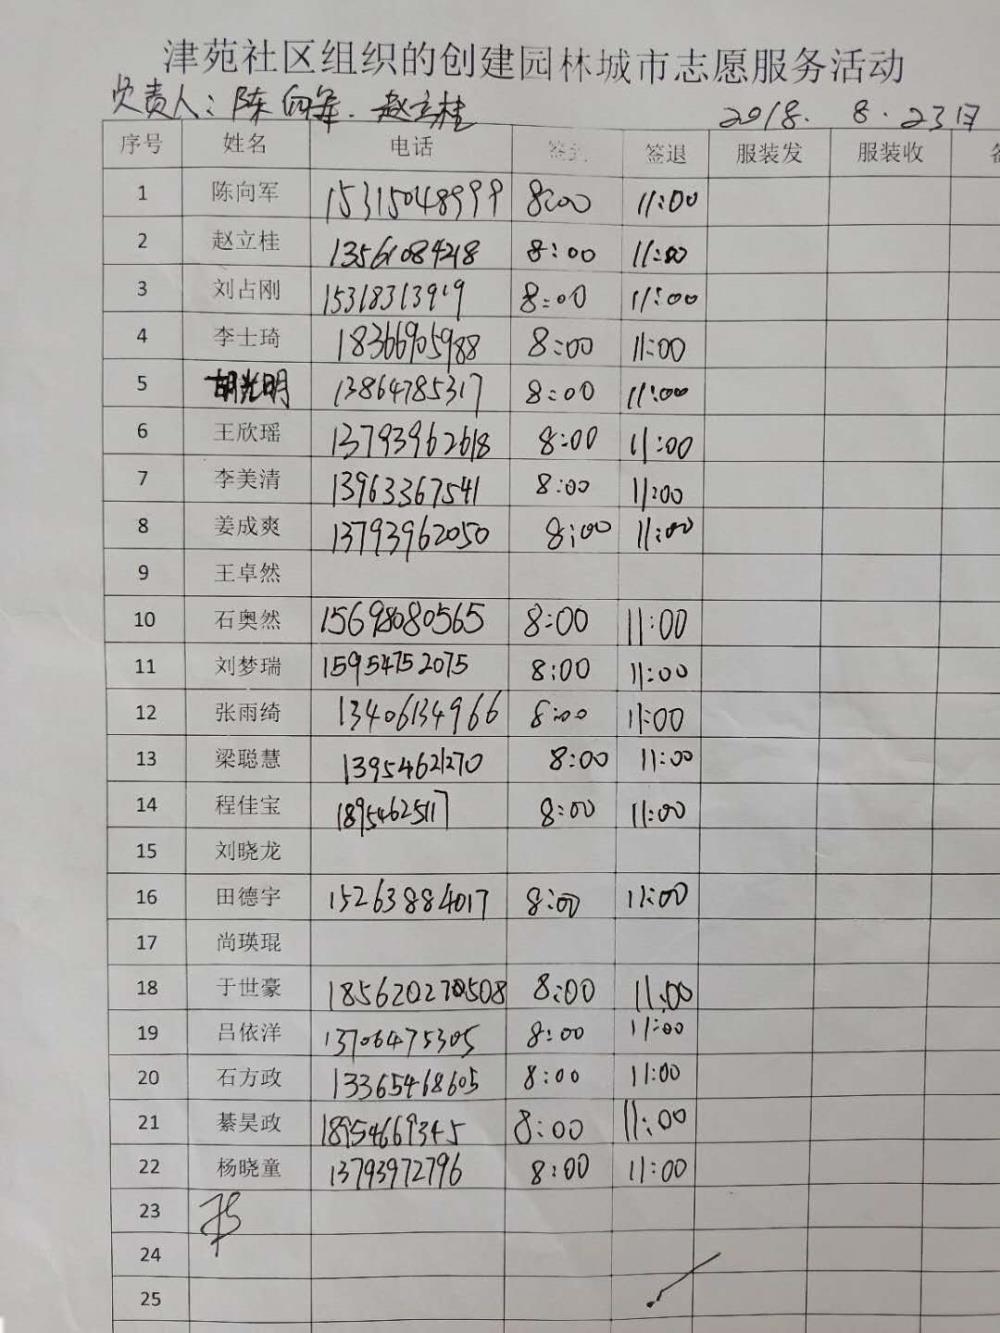 津苑社区组织的创建园林城市志愿服务活动
负责人：陈向军．赵立桂 2018. 8.23日
序号 姓名 电话 签到 签退 服装发 服装收
1 陈向军 15315048999 8:00 11:00
2 赵立桂 13561084218 8:00 11:00
3 刘占刚 15318313919 8:00 11:00
4 李士琦 18366905988 8:00 11:00
5 胡光明 13864785317 8:00 11:00
6 王欣瑶 13793962618 8:00 11:00
7 李美清 13963367541 8:00 11:00
8 姜成爽 13793962050 8:00 11:00
9 王卓然
10 石奥然 15698080565 8:00 11:00
11 刘梦瑞 15954752075 8:00 11:00
12 张雨绮 13406134966 8:00 11:00
13 梁聪慧 13954621270 8:00 11:00
14 程佳宝 18954625117 8:00 11:00
15 刘晓龙
16 田德宇 15263884017 8:00 11:00
17 尚瑛琨
18 于世豪 185620270508 8:00 11:00
19 吕依洋 13706475305 8:00 11:00
20 石方政 13365468605 8:00 11:00
21 綦昊政 18954669345 8:00 11:00
22 杨晓童 13793972796 8:00 11:00
23
24
25